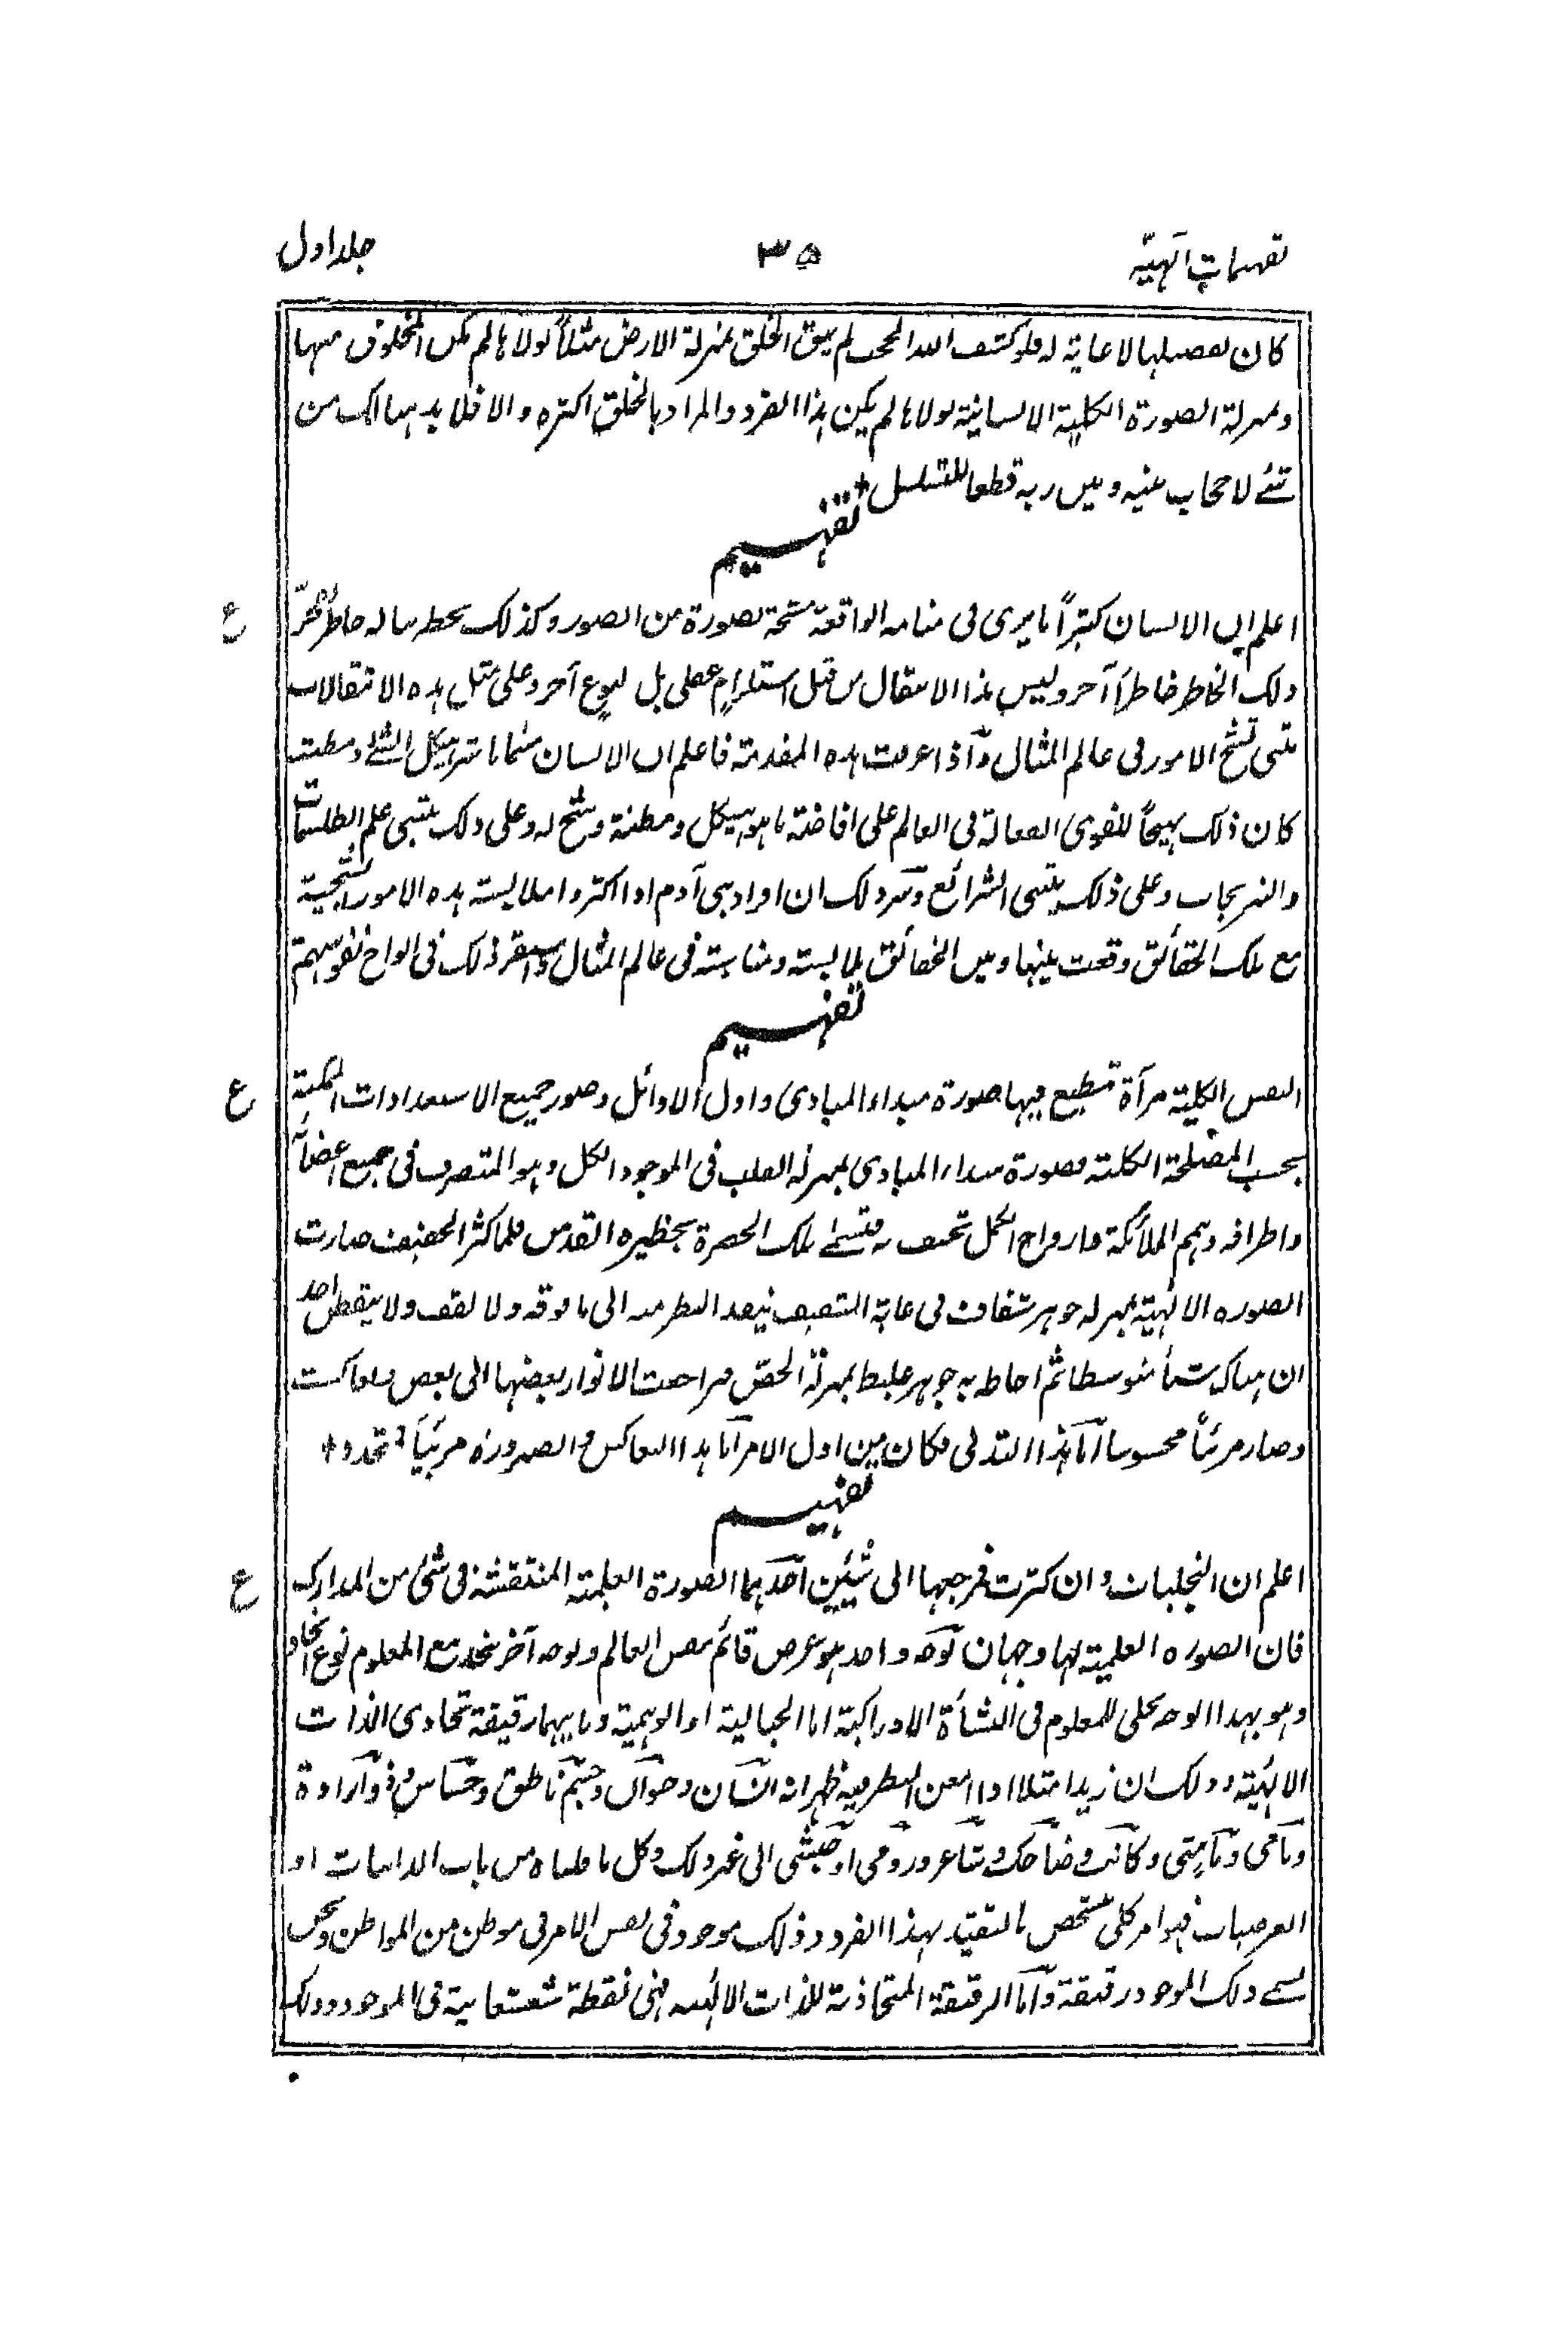 تفهيمات الٰهيّه ٣٥ جلد اول
كان تفصيلها لا غاية له فلو كشف الله الحجب لم يبق الخلق بمنزلة الارض مثلاً لولاها لم يكن المخلوق منها
وبمنزلة الصورة الكلية الانسانية لولاها لم يكن هذا الفرد والمراد بالخلق اكثره والا فلا بد هنالك من
شئ لا حجاب بينه وبين ربه قطعا للتسلسل +
تفهيم
اعلم ان الانسان كثيراً ما يرى فى منامه الواقعة متشبحة بصورة من الصور وكذلك يخطر بباله خاطر
ذلك الخاطر خاطراً آخر وليس هذا الانتقال من قبل استلزام عقلى بل لنوع آخر وعلى مثل هذه الانتقالات
يبتنى تشبح الامور فى عالم المثال وآذا عرفت هذه المقدمة فاعلم ان الانسان هيكل الشئ ومظنته
كان ذلك مهيجاً للقوى الفعالة فى العالم على افاضة ما هو هيكل ومظنة وشبح له وعلى ذلك يبتنى علم الطلسمات
والنيرنجات وعلى ذلك يبتنى الشرائع وسر ذلك ان افراد بنى آدم اذا اكثروا ملابسة هذه الامور الشبحية
مع تلك الحقائق وقعت بينها وبين الحقائق ملابسة ومناسبة فى عالم المثال واستقر ذلك فى الواح نفوسهم
تفهيم
النفس الكلية مرآة تنطبع فيها صورة مبداء المبادى واول الاوائل وصور جميع الاستعدادات الممكنة
بحسب المصلحة الكلية فصورة مبداء المبادى بمنزلة القلب فى الموجود الكل وهو المتصرف فى جميع اعضائه
واطرافه وهم الملائكة وارواح الكمل تحتف به فتسمى تلك الحضرة بحظيرة القدس فلما كثر صارت
الصورة الالٰهية بمنزلة جوهر شفاف فى غاية التشفيف ينفذ النظر منه الى ما فوقه ولا يقف ولا يتفطن احد
ان هناك شيأ متوسطا ثم احاط به جوهر غليظ بمنزلة الجص فراجعت الانوار بعضها الى بعض وتعاكست
وصار مرئياً محسوسا اما هذا التدلى فكان من اول الامر اما هذا التعاكس والصيرورة مرئياً فتجدد +
تفهيم
اعلم ان التجليات وان كثرت فمرجعها الى شيئين آحدهما الصورة العلمية المنتقشة فى شئ من المدارك
فان الصورة العلمية لها وجهان بوجه واحد هو عرض قائم بنفس العالم وبوجه آخر متحد مع المعلوم نوع اتحاد
وهو بهذا الوجه تجلى للمعلوم فى النشأة الادراكية اما الخيالية او الوهمية وثانيهما رقيقة تحاذى الذات
الالٰهية وذلك ان زيدا مثلا اذا امعن النظر فيه ظهر انه انسان وحيوان وجسم ناطق وحساس وذو آرادة
ونامى وماشى وكاتب وضاحك وشاعر ورومى او حبشى الى غير ذلك وكل ما قلناه من باب الذاتيات او
العرضيات فهو امر كلى تشخص بالتقيد بهذا الفرد وذلك موجود فى نفس الامر فى موطن من المواطن ونحن
نسمى ذلك الموجود رقيقة وآما الرقيقة المتحاذية للذات الالٰهية فهى نقطة شعشعانية فى الموجود وذلك
ع
ع
ع